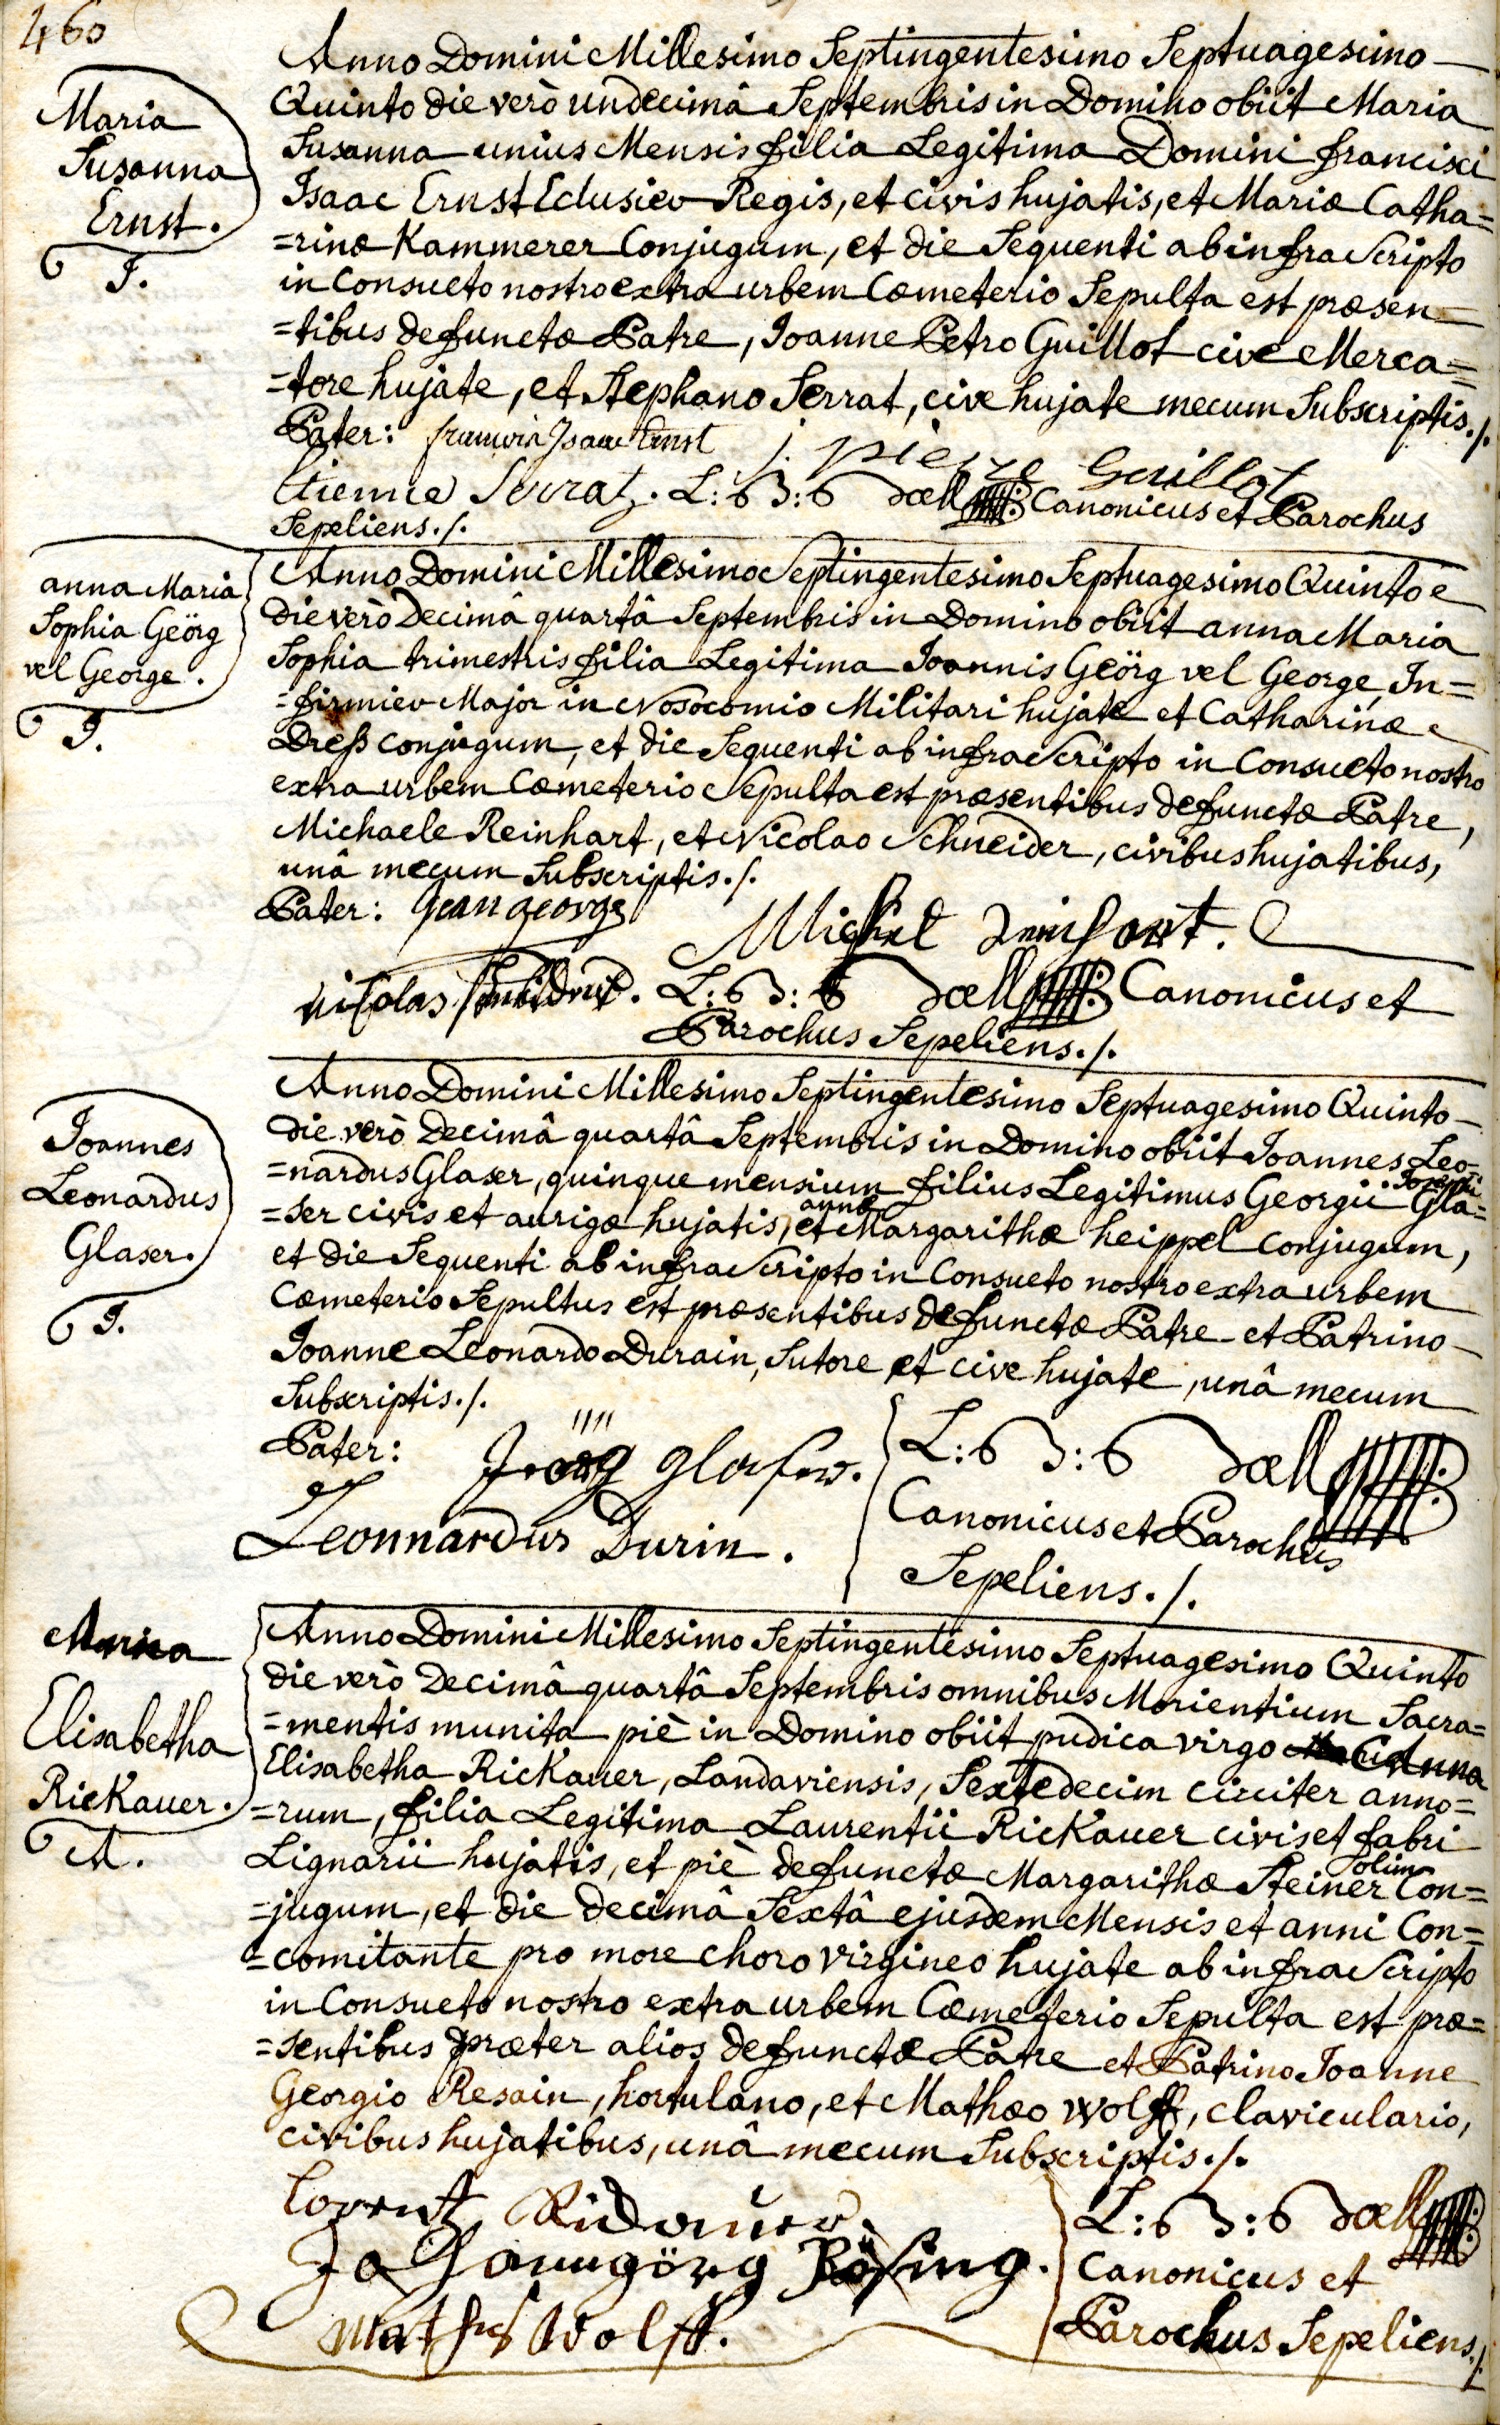 460
Maria
Susanna
Ernst.
I.
Anno Domini Millesimo Septingentesimo Septuagesimo
Quinto die verò undecimâ Septembris in Domino obiit Maria
Susanna unius Mensis filia Legitima Domini francisci
Isaac Ernst Eclusier Regis, et civis hujatis, et Mariæ Catha=
=rinæ Kammerer Conjugum, et die Sequenti ab infra Scripto
in Consueto nostro extra urbem Cœmeterio Sepulta est præsen=
=tibus defunctæ Patre, Joanne Petro Guillot cive Merca=
=tore hujate, et Stephano Serrat, cive hujate mecum Subscriptis./.
Pater: francois Isaac Ernst j. pierre Guillot
Etienne Serrat. L: B: Doell Canonicus et Parochus
Sepeliens./.
anna Maria
Sophia Geörg
vel George.
I.
Anno Domini Millesimo Septingentesimo Septuagesimo Quinto
die verò Decimâ quartâ Septembris in Domino obiit anna Maria
Sophia trimestris filia Legitima Joannis Geörg vel George, In=
=firmier Major in Nosocomio Militari hujate et Catharinæ
Dreß conjugum, et die Sequenti ab infra Scripto in Consueto nostro
extra urbem Cœmeterio Sepulta est præsentibus defunctæ Patre,
Michaele Reinhart, et Nicolao Schneider, civibus hujatibus,
unâ mecum Subscriptis./.
Pater: Jean george Michel Reinhart.
nicolas Schneider. L: B: Doell Canonicus et
Parochus Sepeliens./.
Joannes
Leonardus
Glaser.
I.
Anno Domini Millesimo Septingentesimo Septuagesimo Quinto
die verò Decimâ quartâ Septembris in Domino obiit Joannes Leo=
=nardus Glaser, quinque mensium filius Legitimus Georgii Josephi Gla=
=ser civis et aurigæ hujatis, et annæ Margarithæ heippel conjugum,
et die Sequenti ab infra Scripto in Consueto nostro extra urbem
Cœmeterio Sepultus est præsentibus defunctæ Patre et Patrino
Joanne Leonardo Durain, Sutore et cive hujate, unâ mecum
Subscriptis./.
Pater: Jeörg glaser.
Leonnardus Durin.
L: B: Doell
Canonicus et Parochus
Sepeliens./.
Elisabetha
Rickauer.
A.
Anno Domini Millesimo Septingentesimo Septuagesimo Quinto
die verò Decimâ quartâ Septembris omnibus Morientium Sacra=
=mentis munita piè in Domino obiit pudica virgo Anna
Elisabetha Rickauer, Landaviensis, Sextedecim circiter anno=
=rum, filia Legitima Laurentii Rickauer civis et fabri
Lignarii hujatis, et piè defunctæ Margarithæ Steiner olim Con=
=jugum, et die decimâ Sextâ ejusdem Mensis et anni Con=
=comitante pro more choro virgineo hujate ab infra Scripto
in Consueto nostro extra urbem Cœmeterio Sepulta est præ=
=sentibus præter alios defunctæ Patre et Patrino Joanne
Georgio Resain, hortulano, et Mathæo Wolff, claviculario,
civibus hujatibus, unâ mecum Subscriptis./.
Lorentz Rickauer.
Johanngörg Rösing.
Mathes Wolff.
L: B: Doell
Canonicus et
Parochus Sepeliens./.